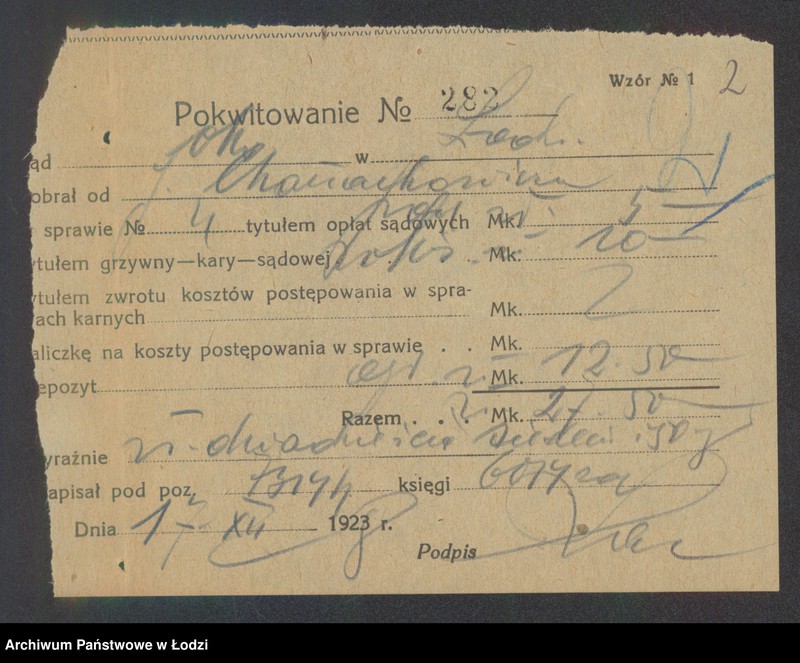 Wzór № 1 2
Pokwitowanie № 282
ąd w Łodzi
obrał od
sprawie № 4 tytułem opłat sądowych Mk. 5 —
ytułem grzywny—kary—sądowej Mk. 10 —
ytułem zwrotu kosztów postępowania w spra-
ach karnych Mk.
aliczkę na koszty postępowania w sprawie . . Mk.
epozyt Mk. 12.50
Razem . . . Mk. 27.50
yraźnie zł. dwadzieścia siedem i 50 g
apisał pod poz. księgi
Dnia XII 1923 r.
Podpis
Archiwum Państwowe w Łodzi